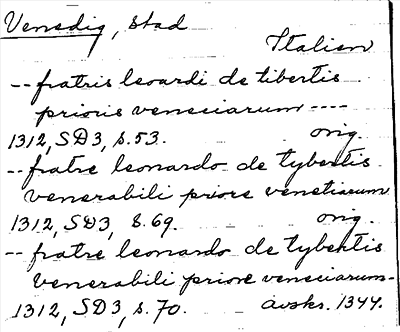 Venedig, stad
Italien
-- fratris leonardi de tibertis
prioris veneciarum ----
1312, SD3, s. 53. orig.
-- fratre leonardo de tybertis
venerabili priore venetiarum
1312, SD3, s. 69. orig.
-- fratre leonardo de tybertis
venerabili priore veneciarum -
1312, SD3, s. 70. avskr. 1344.